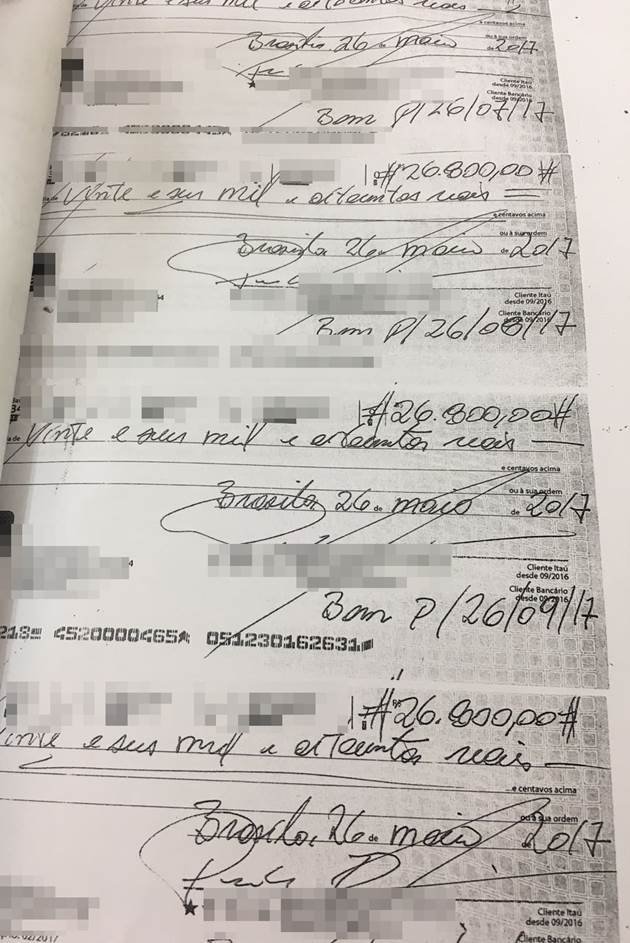 Vinte e seis mil e oitocentos reais
e centavos acima
ou à sua ordem
Brasília 26 de maio de 2017
Cliente Itaú
desde 09/2016
Cliente Bancário
desde 09/2016
Bom P/26/07/17
#26.800,00#
Vinte e seis mil e oitocentos reais
e centavos acima
ou à sua ordem
Brasília 26 de maio de 2017
Cliente Itaú
desde 09/2016
Cliente Bancário
desde 09/2016
Bom P/26/08/17
#26.800,00#
Vinte e seis mil e oitocentos reais
e centavos acima
ou à sua ordem
Brasília, 26 de maio de 2017
Cliente Itaú
desde 09/2016
Cliente Bancário
desde 09/2016
Bom P/26/09/17
218 4520000465A 051230162631
R$ #26.800,00#
Vinte e seis mil e oitocentos reais
e centavos acima
ou à sua ordem
Brasília, 26 de maio de 2017
Cliente Itaú
desde 09/2016
02/2017
Cliente Bancário